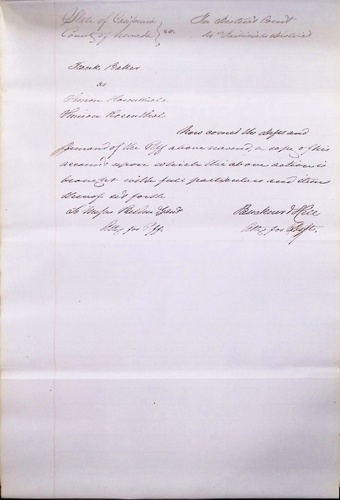 State of California } ss. In District Court
County of Nevada 14 Judicial District
Frank Baker
vs
Simon Rosenthal
Now comes the defts and
demand of the Plff above named, a copy of his
account upon which the above action is
brought with full particulars and items
thereof set forth
To Messrs
Atty for Plff. Atty for Defts.